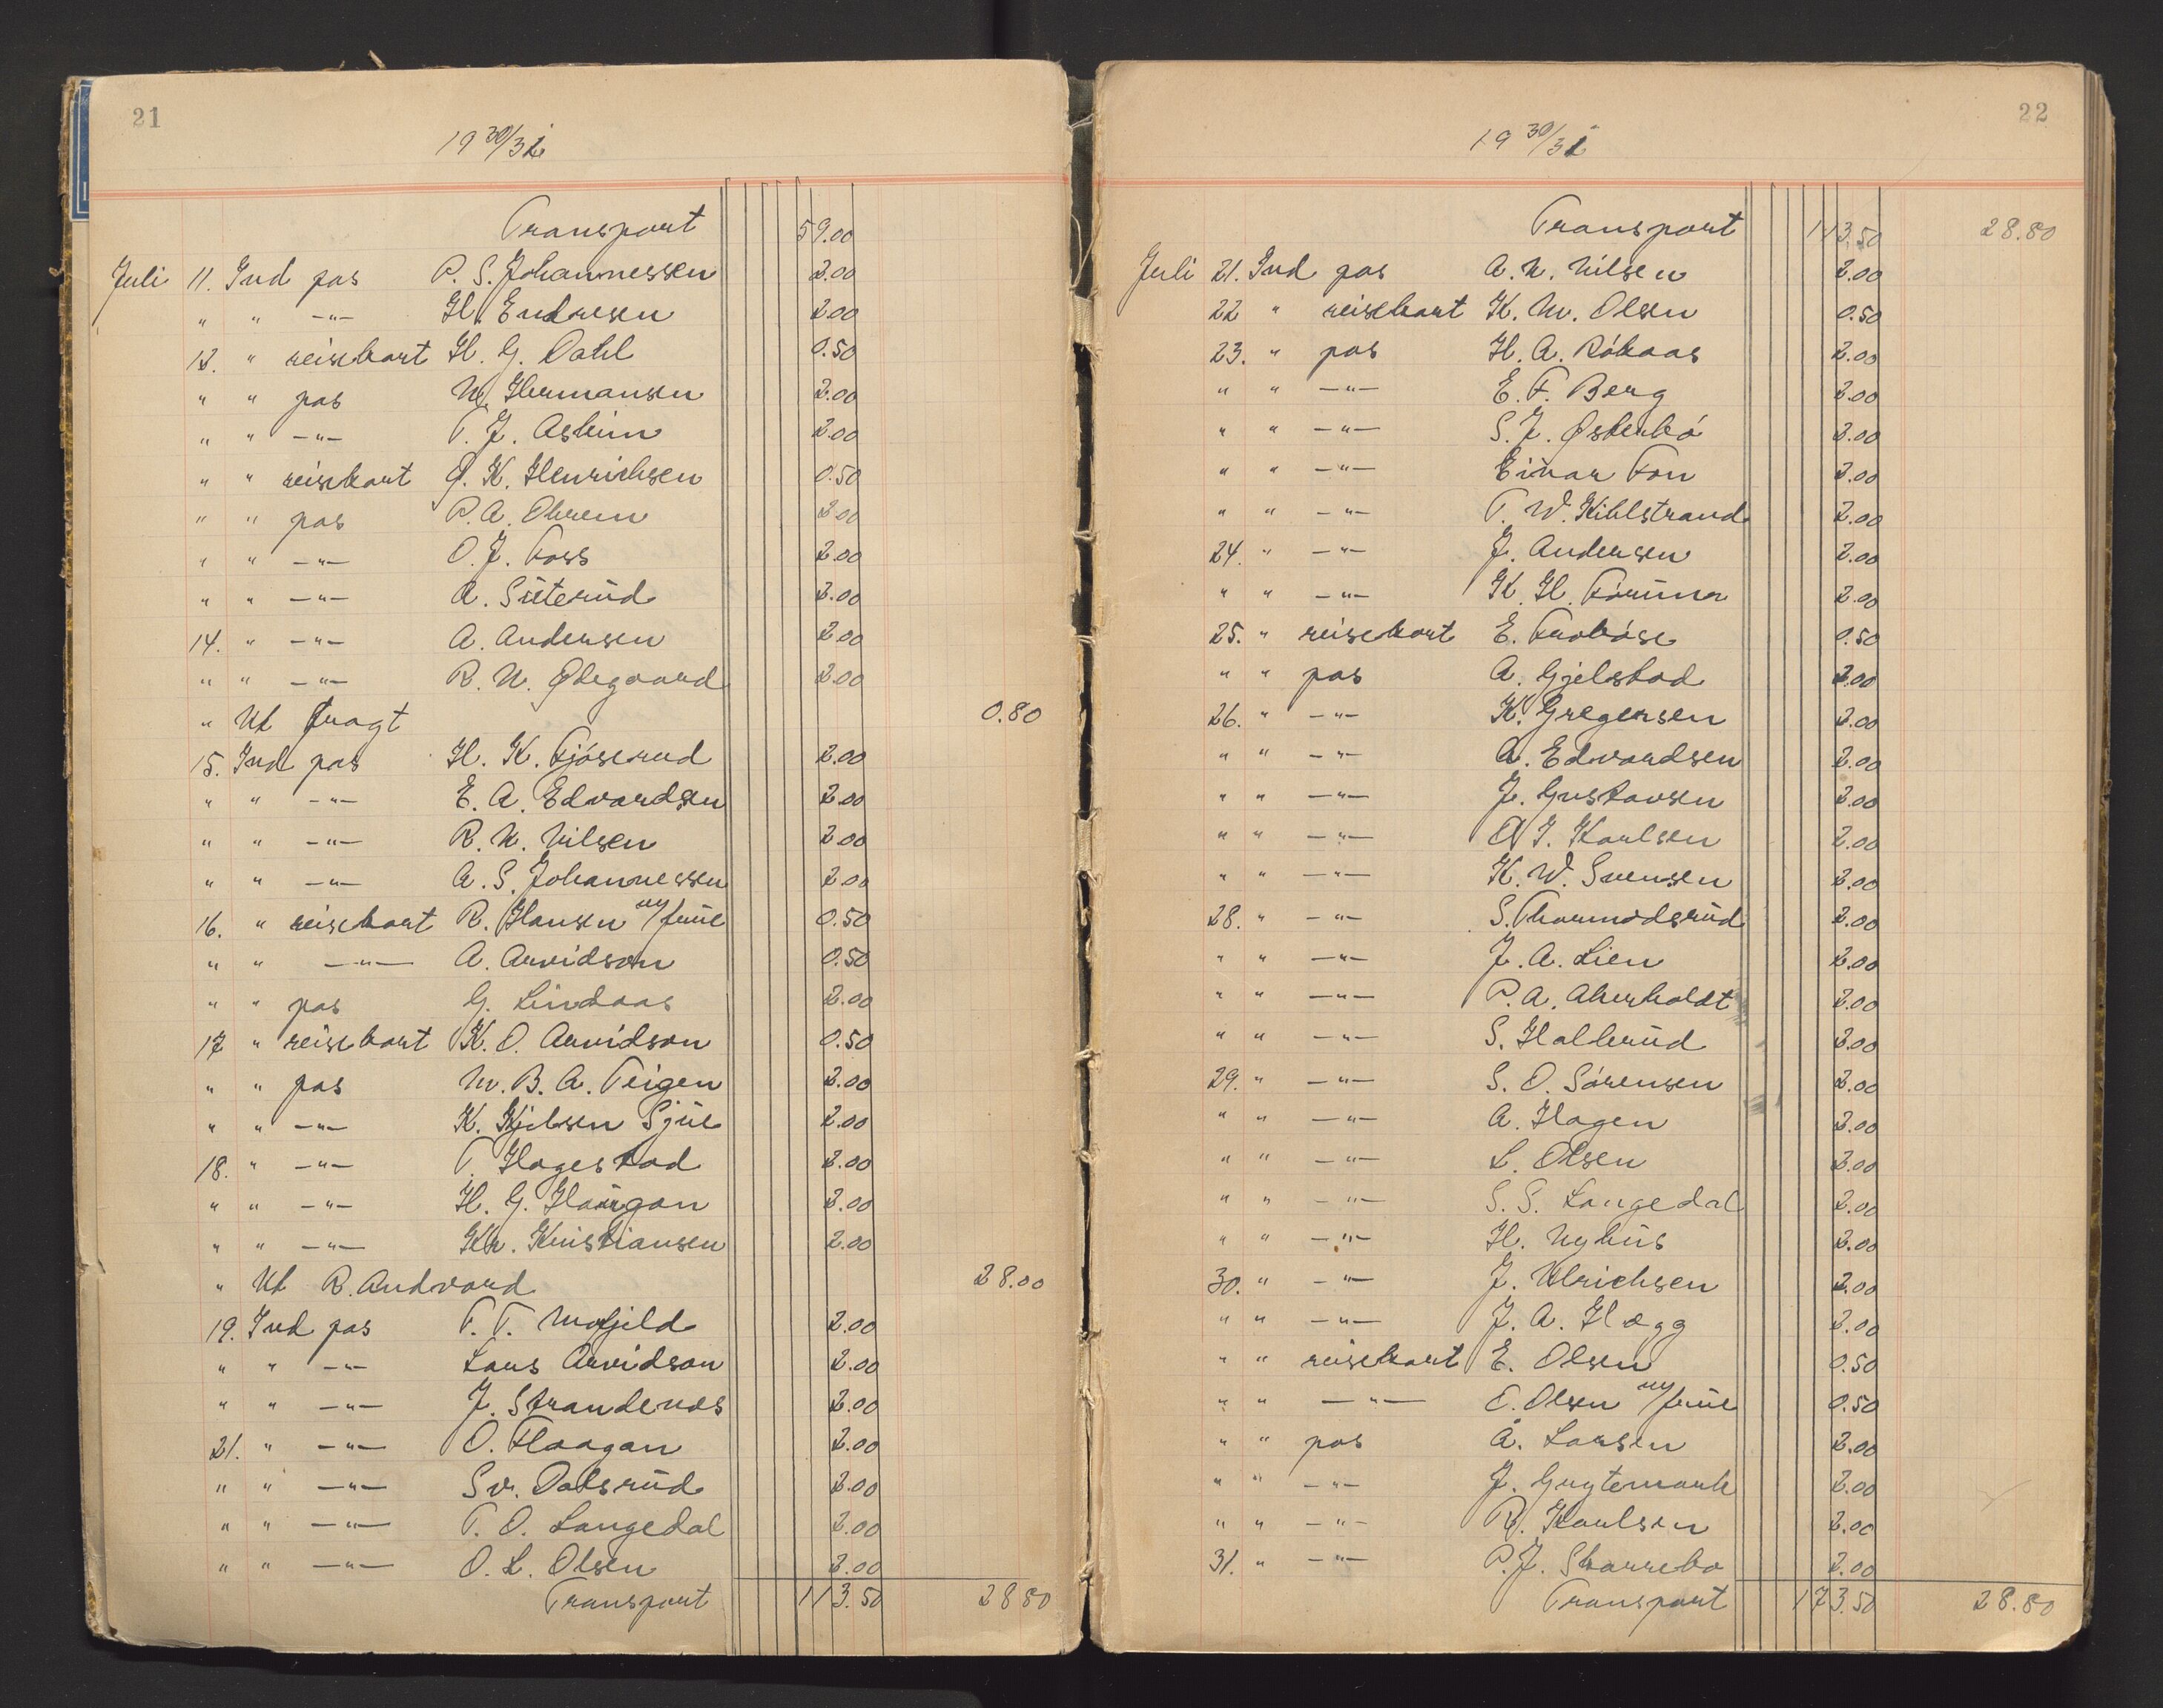 21
19 30/31
Transport 59.00
Juli 11. Ind pas P. S. Johannessen 2.00
" " —"— H. Endresen 2.00
12. " reisekort H. G. Dahl 0.50
" " pas N. Hermansen 2.00
" " —"— T. J. Askim 2.00
" " reisekort O. K. Henrichsen 0.50
" " pas P. A. Ohrem 2.00
" " —"— O. J. Foss 2.00
" " —"— A. Süterüd 2.00
14. " —"— A. Andersen 2.00
" " —"— R. N. Ødegaard 2.00
" Ut fragt 0.80
15. Ind pas H. K. Fjöserud 2.00
" " —"— E. A. Edvardsen 2.00
" " —"— R. N. Nilsen 2.00
" " —"— A. S. Johannessen 2.00
16. " reisekort R. Hansen m/frue 0.50
" " —"— A. Arvidson 0.50
" " pas G. Lindaas 2.00
17 " reisekort K. O. Arvidson 0.50
" " pas M. B. A. Teigen 2.00
" " —"— K. Kjelsen Sjüe 2.00
18. " —"— T. Hagestad 2.00
" " —"— H. G. Haügan 2.00
" " —"— Kr. Kristiansen 2.00
" Ut R. Andvord 28.00
19. Ind pas T. T. Mofjeld 2.00
" " —"— Lars Arvidson 2.00
" " —"— J. Strandenæs 2.00
21. " —"— O. Haagan 2.00
" " —"— Sv. Dalsrüd 2.00
" " —"— T. O. Langedal 2.00
" " —"— O. L. Olsen 2.00
Transport 113.50 28 80
22
19 30/31
Transport 113.50 28.80
Juli 21. Ind pas A. N. Nilsen 2.00
22 " reisekort K. M. Olsen 0.50
23. " pas H. A. Rökaas 2.00
" " —"— E. F. Berg 2.00
" " —"— S. J. Østerbö 2.00
" " —"— Einar Fon 2.00
" " —"— T. W. Kihlstrand 2.00
24. " —"— J. Andersen 2.00
" " —"— K. H. 2.00
25. " reisekort E. Froböse 0.50
" " pas A. Gjelstad 2.00
26. " —"— K. Gregersen 2.00
" " —"— A. Edvardsen 2.00
" " —"— J. Gustavsen 2.00
" " —"— A J. Karlsen 2.00
" " —"— K. W. Svensen 2.00
28. " —"— S. Thormodsrüd 2.00
" " —"— J. A. Lien 2.00
" " —"— P. A. Akerholdt 2.00
" " —"— S. Holterüd 2.00
29. " —"— S. O. Sörensen 2.00
" " —"— A. Hagen 2.00
" " —"— L. Olsen 2.00
" " —"— S. S. Langedal 2.00
" " —"— H. Nyhüs 2.00
30. " —"— J. Ulrichsen 2.00
" " —"— J. A. Hægg 2.00
" " reisekort E. Olsen 0.50
" " —"— E. Olsen m/frue 0.50
" " pas A. Larsen 2.00
" " —"— J. Grytemark 2.00
" " —"— R. Karlsen 2.00
31. " —"— P. J. Skarrebo 2.00
Transport 173.50 28.80